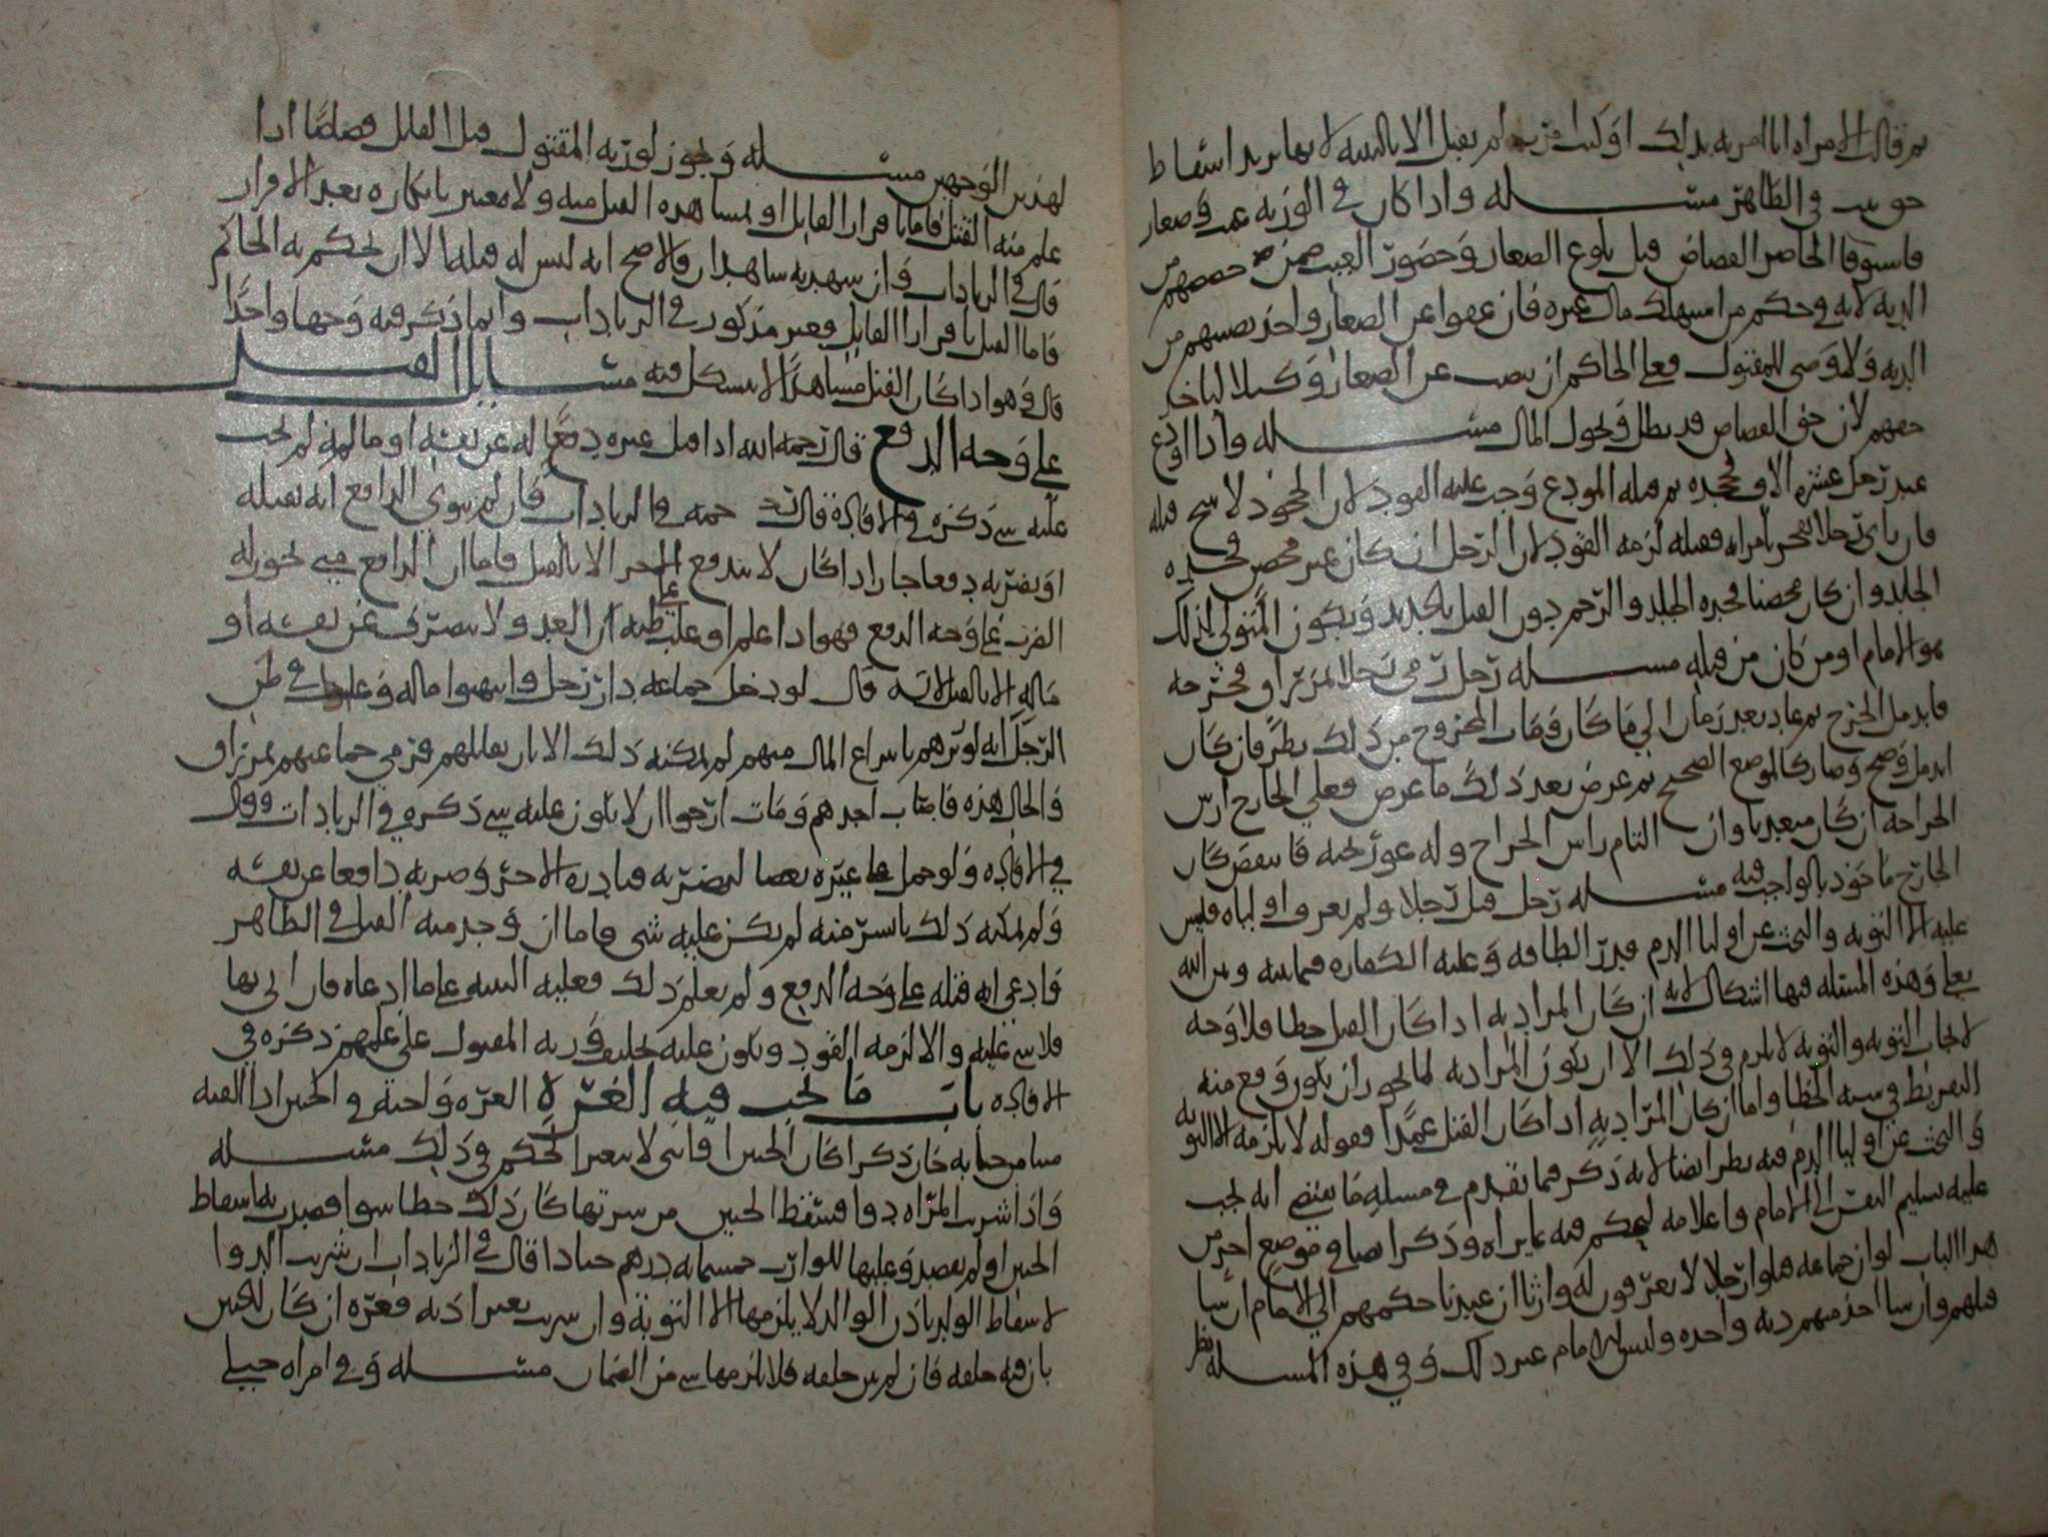 ثم قالت الامراه انا امرته بذلك او كنت لم يقبل الا بالبينه لانها تريد اسقاط
حق في الظاهر مسئله واذا كان في الورثه غيب وصغار
فاستوفا الحاضر القصاص قبل بلوغ الصغار وحضور الغيب ضمن حصصهم من
الديه لانه في حكم من استهلك مال غيره فان عفوا عن الصغار واخذ نصيبهم من
الديه ولا وصي للمقتول فعلى الحاكم ان ينصب عن الصغار وكيلا لياخذ
حقهم لان حق القصاص قد بطل وتحول المال مسئله واذا اودع
عبد رجل عشره الاف فجحده ثم قتله المودع وجب عليه القود لان الجحود لا يبيح قتله
فان راى رجلا يفجر بامراه فقتله لزمه القود لان الرجل ان كان غير محصن فحده
الجلد وان كان محصنا فحده الجلد والرجم دون القتل بالحديد ويكون المتولي لذلك
هو الامام او من كان من قبله مسئله رجل رمى رجلا بمزراق فجرحه
فاندمل الجرح ثم عاد بعد زمان الى ما كان ومات المجروح من ذلك نظر فان كان
اندمل وصح وصار كالموضع الصحيح ثم عرض بعد ذلك ما عرض فعلى الجارح ارش
الجراحه ان كان متعديا وان التام راس الجراح وله غور تحته فانتقض كان
الجارح ماخوذ بالواجب فيه مسئله رجل قتل رجلا ولم يعرف اولياه فليس
عليه الا التوبه والبحث عن اوليا الدم قدر الطاقه وعليه الكفاره فيما بينه وبين الله
تعالى وهذه المسئله فيها اشكال لانه ان كان المراد به اذا كان القتل خطا فلا وجه
لايجاب التوبه والتوبه لا تلزم في ذلك الا ان يكون المراد به لما يجوز ان يكون وقع منه
التفريط في سببه الخطا واما ان كان المراد به اذا كان القتل عمدا فقوله لا يلزمه الا التوبه
والبحث عن اوليا الدم فيه نظر ايضا لانه ذكر فيما تقدم في مسله ما يقتضي انه يجب
عليه تسليم النفس الى الامام واعلامه ليحكم فيه بما يراه وذكر ايضا في موضع اخر من
هذا الباب لو ان جماعه قتلوا رجلا لا يعرفون له وارثا ان عندنا حكمهم الى الامام ان شا
قتلهم وان شا اخذ منهم ديه واحده وليس للامام غير ذلك وفي هذه المسله نظر
لهذين الوجهين مسئله ويجوز لورثه المقتول قتل القاتل قصاصا اذا
علم منه القتل فاما باقرار القاتل او بمشاهده القتل منه ولا معتبر بانكاره بعد الاقرار
قال في الزيادات وان شهد به شاهدان فالاصح انه ليس له قتله الا ان يحكم به الحاكم
فاما القتل باقرار القاتل فغير مذكور في الزيادات وانما ذكر فيه وجها واحدا
قال وهو اذا كان القتل مشاهدا لا يشكل فيه مسائل القتل
على وجه الدفع قال رحمه الله اذا قتل غيره دفعا له عن نفسه او ماله لم يجب
عليه شي ذكره في الافاده قال رحمه في الزيادات فان لم ينوي الدافع انه يقتله
او يضربه دفعا جاز اذا كان لا يندفع الا بالقتل فاما ان الدافع متى يجوز له
الضرب على وجه الدفع فهو اذا علم او غلب على ظنه ان العدو لا ينصرف عن نفسه او
ماله الا بالقتل لانه قال لو دخل جماعه دار رجل وانتهبوا ماله وغلب في ظن
الرجل انه لو امرهم باسترجاع المال منهم لم يمكنه ذلك الا بان يقاتلهم فرمى جماعتهم بمزراق
والحال هذه فاصاب احدهم ومات ارجوا ان لا يكون عليه شي ذكره في الزيادات وقال
في الافاده ولو حمل على غيره بعصا ليضربه فبادره الاخر وضربه دافعا عن نفسه
ولم يمكنه ذلك بايسر منه لم يكن عليه شي فاما ان وجد منه القتل في الظاهر
فادعى انه قتله على وجه الدفع ولم يعلم ذلك فعليه البينه على ما ادعاه فان اتى بها
فلا شي عليه والا لزمه القود ويكون عليه تحليف ورثه المقتول على علمهم ذكره في
الافاده باب ما يجب فيه الغره الغره واجبه في الجنين اذا القته
ميتا من جنايه جان ذكرا كان الجنين او انثى لا يتغير الحكم في ذلك مسئله
واذا شربت المراه دوا فسقط الجنين من شربتها كان ذلك خطا سوا قصدت به اسقاط
الجنين او لم تقصد وعليها للوارث خمسمائه درهم جيادا قال في الزيادات ان شربت الدوا
لاسقاط الولد باذن الوالد لا يلزمها الا التوبه وان شربت بغير اذنه فغره ان كان للجنين
بان فيه خلقه فان لم يبن خلقه فلا يلزمها شي من الضمان مسئله وفي امراه حبلى